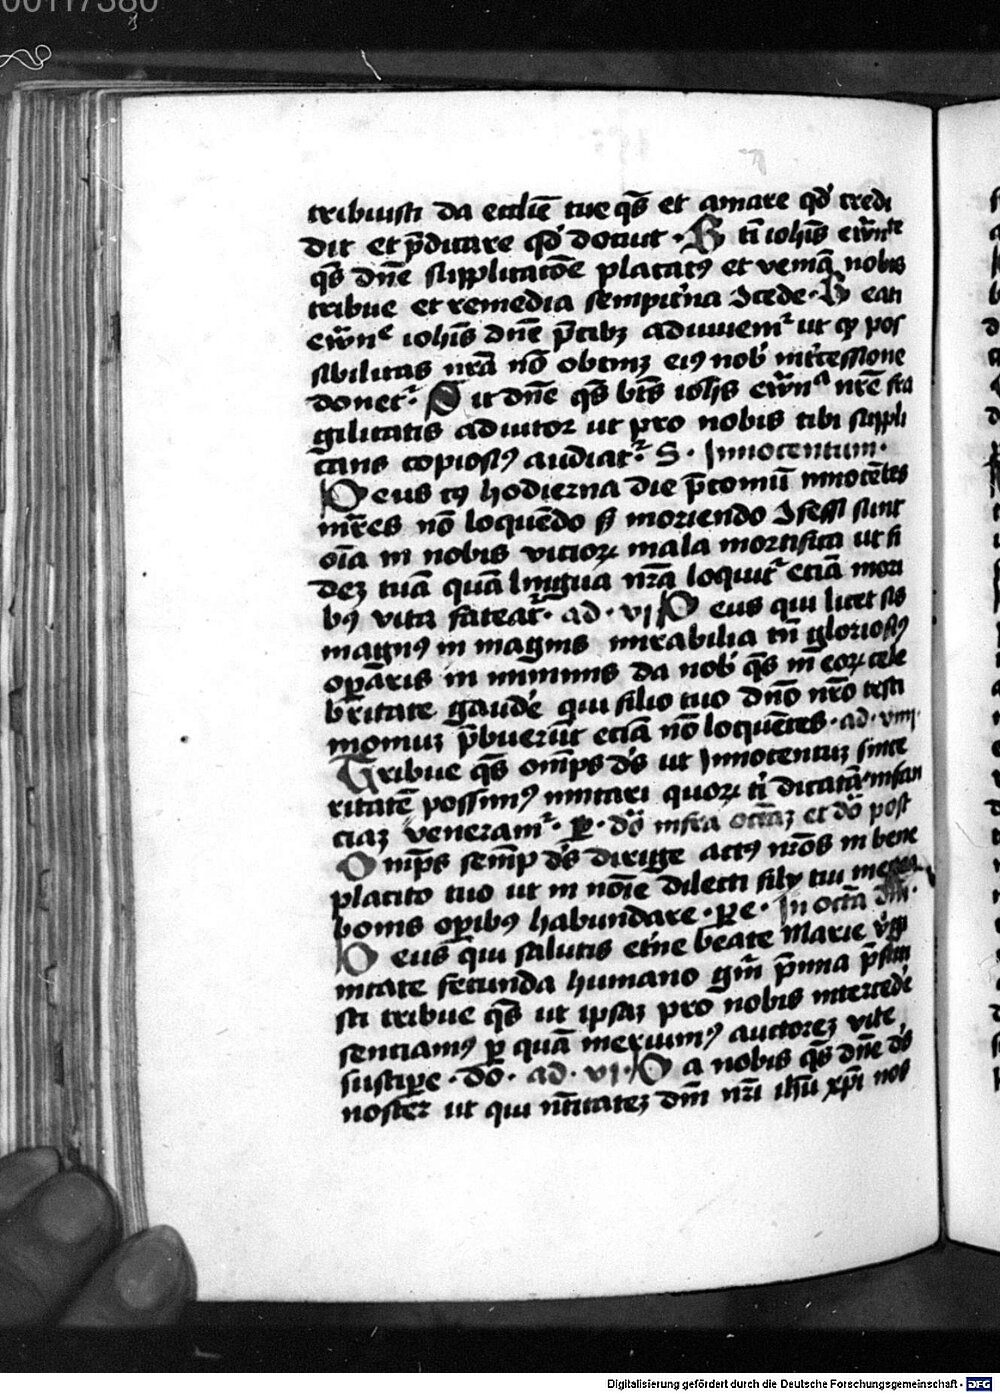 00117380
tribuisti da ecclīe tue qs̄ et amare qd̄ credi
dit et p̄dicare qd̄ docuit · B ti iohīs ew̄nte
qs̄ dn̄e supplicatōe placatꝯ et veniā nobis
tribue et remedia sempit̄na ꝯcede · B eati
ew̄ne iohīs dn̄e p̄cibꝫ adiuuemr ut qꝫ pos
sibilitas nrā nō obtinꝫ eiꝯ nob̄ int̄cessione
donetr · S it dn̄e qs̄ bt̄s iohīs ew̄na nrē fra
gilitatis adiutor ut pro nobis tibi suppli
cans copiosꝯ audiatr · S · Innocentum ·
D eus cꝯ hodierna die p̄coniū innocētes
mr̄es nō loquēdo sꝫ moriendo ꝯfessi sunt
oīa in nobis vicioꝝ mala mortifica ut fi
deꝫ tuā quā lingua nrā loquitr eciā mori
bꝯ vita fateatr · ad · vi D eus qui licet sis
magnꝯ in magnis mirabilia tn̄ gloriosꝯ
oꝑaris in minimis da nob̄ qs̄ in eoꝝ cele
britate gaude qui filio tuo dnō nrō testi
moniuꝫ p̄buerūt eciā nō loquētes · ad · viiii ·
Tribue qs̄ om̄ps ds̄ ut Innocentuꝫ since
ritatē possimꝯ imitari quoꝝ ti dicatā infan
ciaꝫ veneramr · ꝑ · dō infra octāꝫ et dō post
O mp̄s semp̄ ds̄ dirige actꝯ nrōs in bene
placito tuo ut in noīe dilecti filij tui
bonis oꝑibꝯ habundare · ꝑ e · In octā dni ·
D eus qui salutis et̄ne beate Marie v̄gi
nitate fecunda humano gn̄i p̄mia p̄stiti
sti tribue qs̄ ut ipsaꝫ pro nobis intercede
senciamꝯ ꝑ quā meruimꝯ auctoreꝫ vite
suscipe · dō · ad · vi · D a nobis qs̄ dn̄e ds̄
noster ut qui nt̄itateꝫ dn̄i nrī ihū xp̄i nos
Digitalisierung gefördert durch die Deutsche Forschungsgemeinschaft - DFG